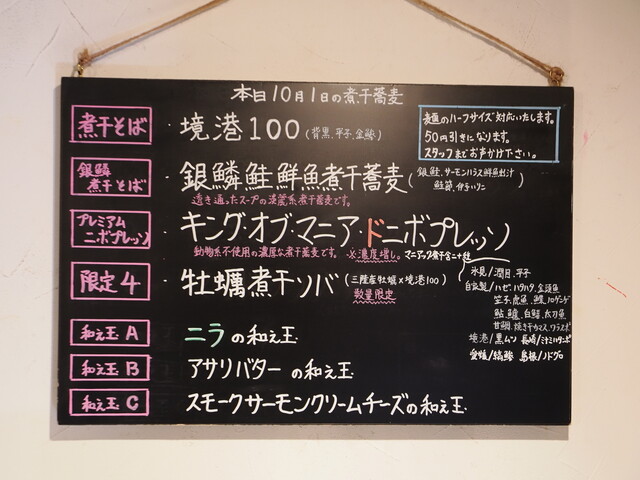 本日10月1日の煮干蕎麦
煮干そば
境港100(背黒、平子、金鯵)
麺のハーフサイズ対応いたします。
50円引きになります。
スタッフまでお声かけ下さい。
銀鱗
煮干そば
銀鱗鮭鮮魚煮干蕎麦
(銀鮭、サーモンハラス鮮魚出汁
鮭節、伊吹いりこ)
透き通ったスープの淡麗系煮干蕎麦です。
プレミアム
ニボプレッソ
キング・オブ・マニア・ドニボプレッソ
動物系不使用の濃厚な煮干蕎麦です。
※濃度増し。
マニアック煮干
氷見/潤目、平子
限定4
牡蠣煮干ソバ
(三陸産牡蠣×境港100)
数量限定
自家製/ハゼ、ハタハタ、金頭魚
甘鯛、焼き干カマス、ワラスボ
境港/黒ムツ
愛媛/縞鯵 島根/ノドグロ
和え玉A
ニラの和え玉
和え玉B
アサリバターの和え玉
和え玉C
スモークサーモンクリームチーズの和え玉